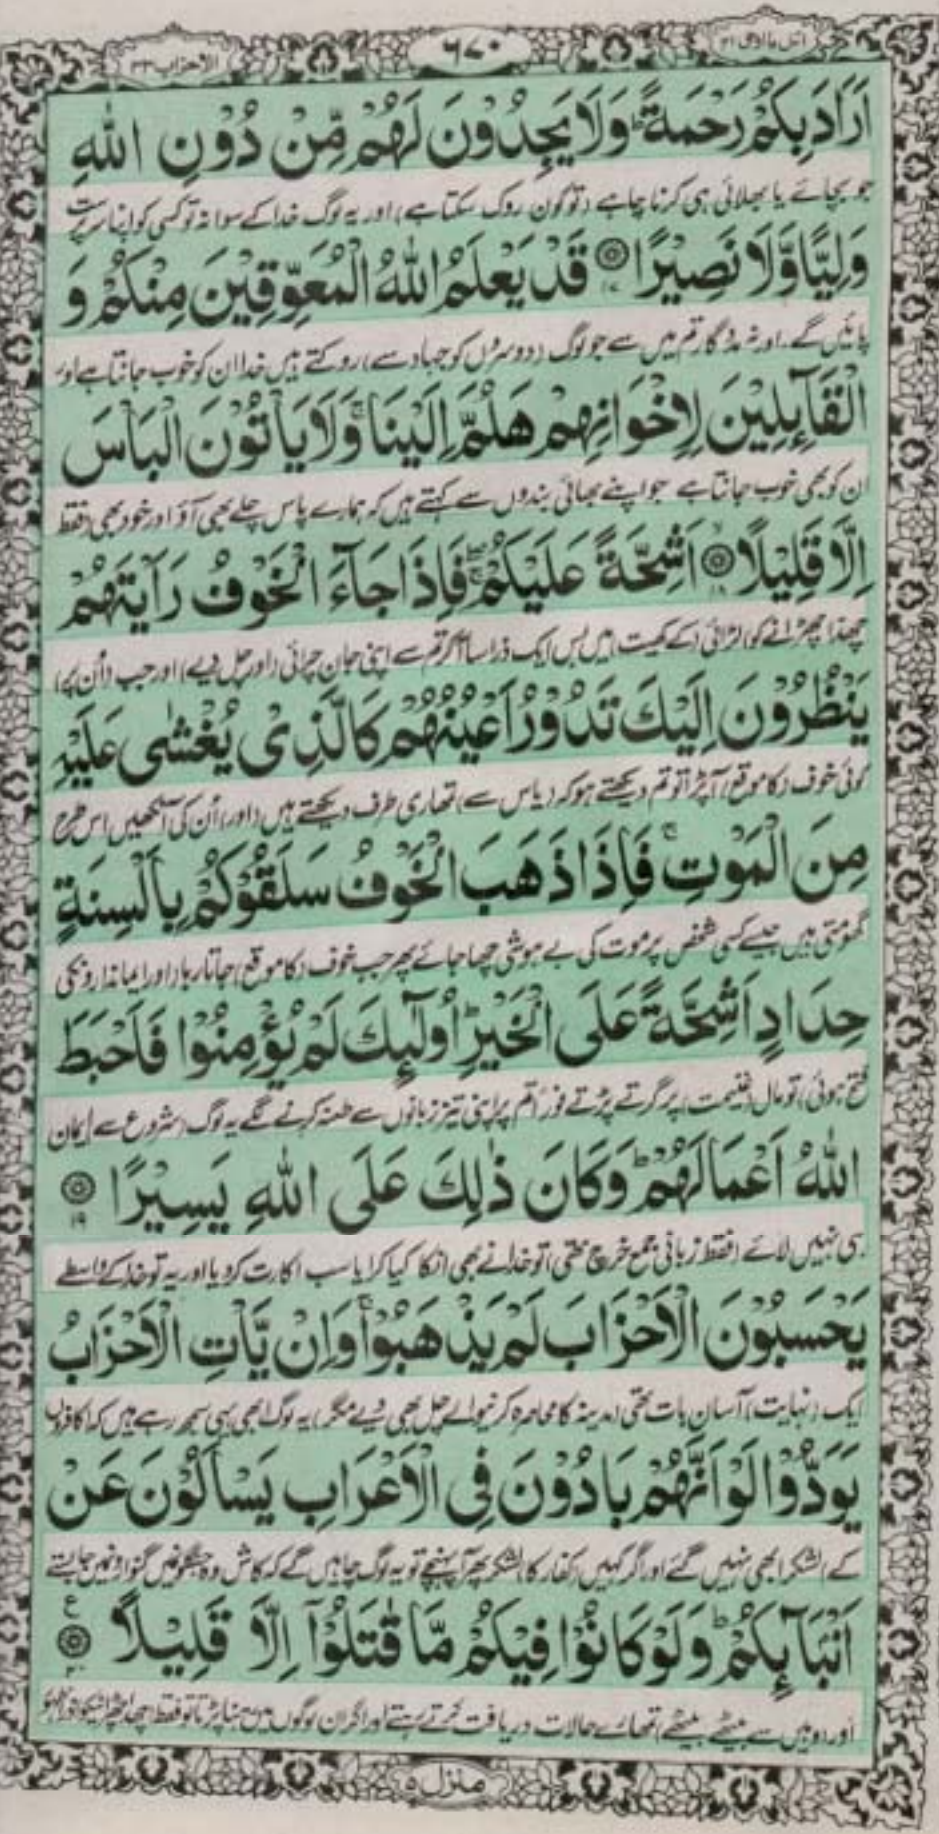 اتل مااوحی ۲۱ ۶۷۰ الاحزاب ۳۳
اَرَادَ بِكُمْ رَحْمَةً ؕ وَلَا يَجِدُوْنَ لَهُمْ مِّنْ دُوْنِ اللّٰهِ
جو بچائے یا بھلائی ہی کرنا چاہے (تو کون روک سکتا ہے) اور یہ لوگ خدا کے سوا نہ تو کسی کو اپنا سرپرست
وَلِيًّا وَّلَا نَصِيْرًا ۝۱۷ قَدْ يَعْلَمُ اللّٰهُ الْمُعَوِّقِيْنَ مِنْكُمْ وَ
پائیں گے اور نہ مددگار تم میں سے جو لوگ (دوسروں کو جہاد سے) روکتے ہیں خدا ان کو خوب جانتا ہے اور
الْقَآىِٕلِيْنَ لِاِخْوَانِهِمْ هَلُمَّ اِلَيْنَا ۚ وَلَا يَاْتُوْنَ الْبَاْسَ
ان کو بھی خوب جانتا ہے جو اپنے بھائی بندوں سے کہتے ہیں کہ ہمارے پاس چلے بھی آؤ اور خود بھی (فقط
اِلَّا قَلِيْلًا ۝۱۸ اَشِحَّةً عَلَيْكُمْ ۖۚ فَاِذَا جَآءَ الْخَوْفُ رَاَيْتَهُمْ
لڑائی کے کھیت میں بس ایک ذرا سا آکر تم سے اپنی جان چرائی (اور چل دیے) اور جب (ان پر)
يَنْظُرُوْنَ اِلَيْكَ تَدُوْرُ اَعْيُنُهُمْ كَالَّذِيْ يُغْشٰى عَلَيْهِ
کوئی خوف (کا موقع) آپڑا تو تم دیکھتے ہو کہ (یاس سے) تمھاری طرف دیکھتے ہیں (اور) اُن کی آنکھیں اس طرح
مِنَ الْمَوْتِ ۚ فَاِذَا ذَهَبَ الْخَوْفُ سَلَقُوْكُمْ بِاَلْسِنَةٍ
گھومتی ہیں جیسے کسی شخص پر موت کی بے ہوشی چھا جائے پھر جب خوف (کا موقع) جاتا رہا اور ایمانداروں کی
حِدَادٍ اَشِحَّةً عَلَى الْخَيْرِ ؕ اُولٰٓىِٕكَ لَمْ يُؤْمِنُوْا فَاَحْبَطَ
فتح ہوئی تو مال (غنیمت) پر گرتے پڑتے فوراً تم پر اپنی تیز زبانوں سے طعنہ کرنے لگے یہ لوگ (شروع سے) ایمان
اللّٰهُ اَعْمَالَهُمْ ؕ وَكَانَ ذٰلِكَ عَلَى اللّٰهِ يَسِيْرًا ۝۱۹
ہی نہیں لائے (فقط زبانی جمع خرچ تھی) تو خدا نے بھی ان کا کیا کرایا سب اکارت کردیا اور یہ تو خدا کے واسطے
يَحْسَبُوْنَ الْاَحْزَابَ لَمْ يَذْهَبُوْا ۚ وَاِنْ يَّاْتِ الْاَحْزَابُ
ایک (نہایت) آسان بات تھی (مدینہ کا محاصرہ کرنیوالے چل بھی دیے مگر) یہ لوگ ابھی یہی سمجھ رہے ہیں کہ (کافروں
يَوَدُّوْا لَوْ اَنَّهُمْ بَادُوْنَ فِي الْاَعْرَابِ يَسْاَلُوْنَ عَنْ
کے) لشکر ابھی نہیں گئے اور اگر کہیں (کفار کا) لشکر پھر آپہنچے تو یہ لوگ چاہیں گے کہ کاش وہ جنگلوں میں گنواروں میں جا بستے
اَنْۢبَآىِٕكُمْ ؕ وَلَوْ كَانُوْا فِيْكُمْ مَّا قٰتَلُوْۤا اِلَّا قَلِيْلًا ۝۲۰ ع
اور وہیں سے بیٹھے بیٹھے تمھارے حالات دریافت کرتے رہتے اور اگر ان لوگوں میں رہنا پڑتا تو فقط
منزل ۵